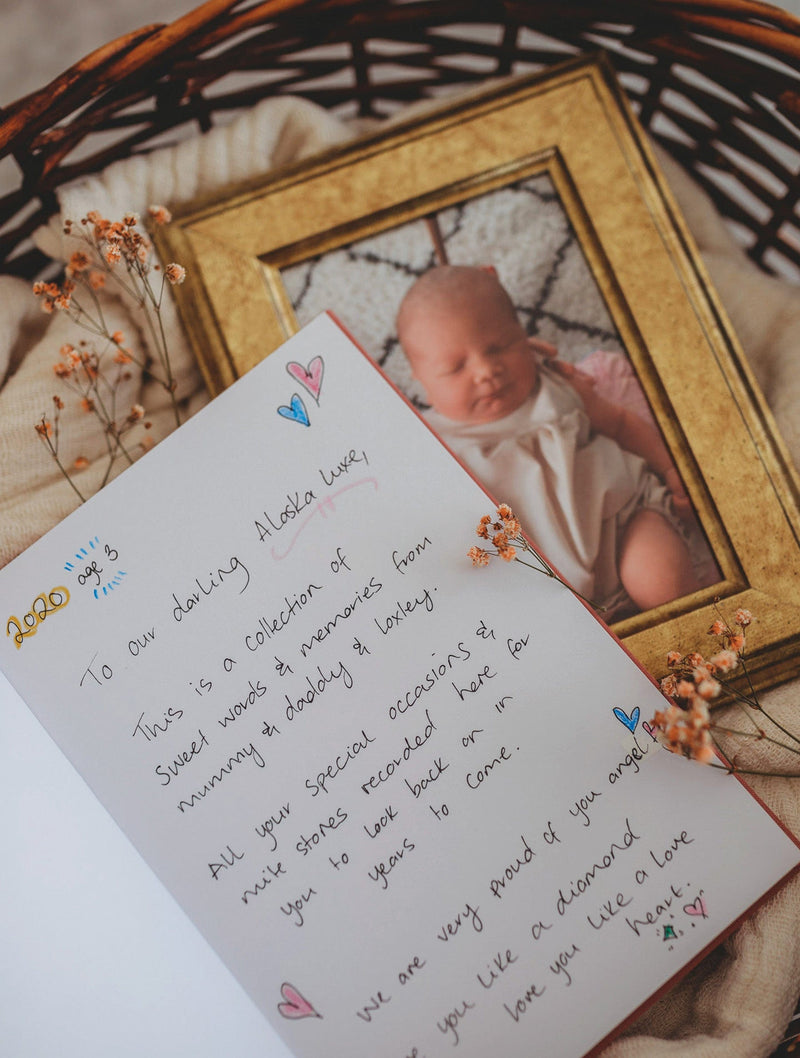 2020
age 3
To our darling Alaska Luxe,
This is a collection of
sweet words & memories from
mummy & daddy & Loxley.
All your special occasions &
mile stones recorded here for
you to look back on in
years to come.
We are very proud of you angel
you like a diamond
love you like a love
heart.